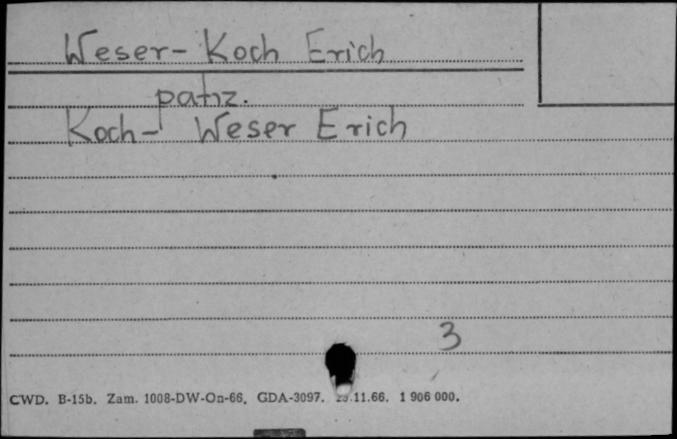 Weser-Koch Erich
patrz.
Koch-Weser Erich
3
CWD. B-15b. Zam. 1008-DW-On-66. GDA-3097. 11.66. 1 906 000.